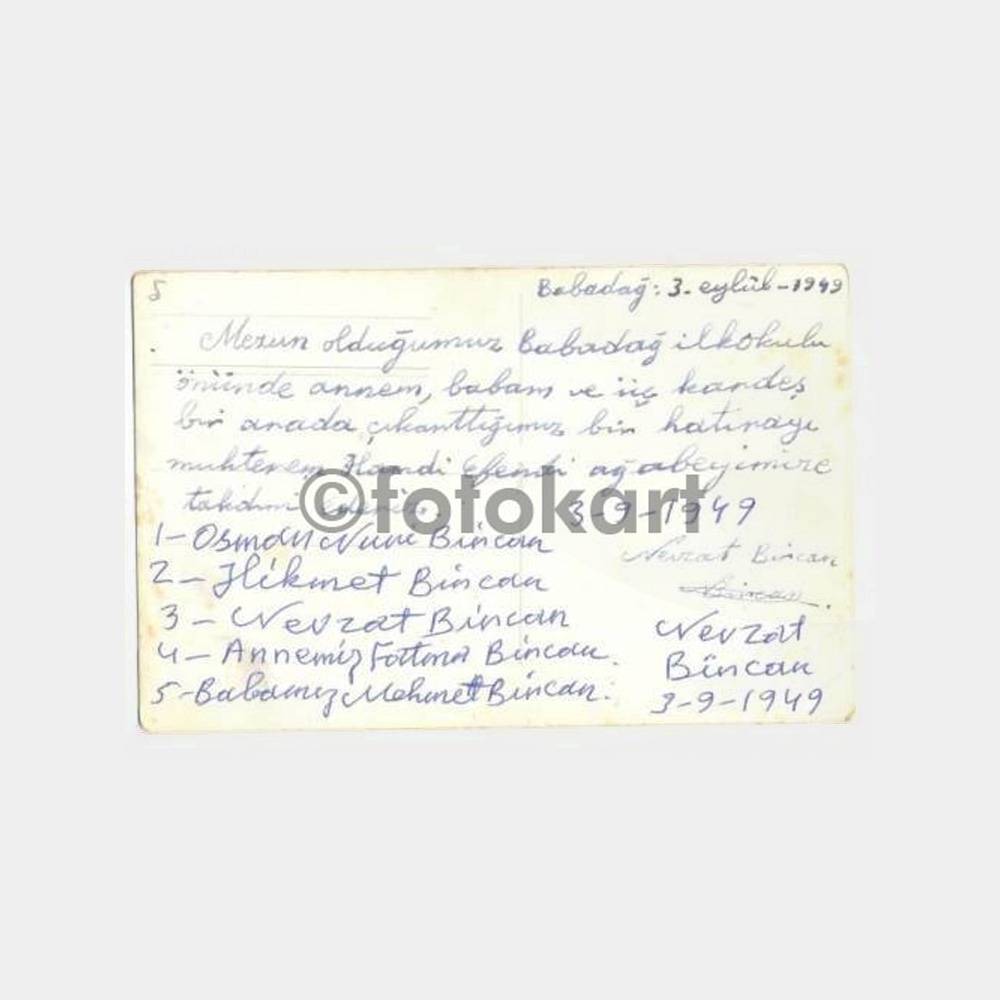 5
Babadağ: 3. eylül - 1949
Mezun olduğumuz Babadağ ilkokulu
önünde annem, babam ve üç kardeş
bir arada çıkarttığımız bir hatırayı
muhterem Hamdi Efendi ağabeyimize
takdim ederiz.
©fotokart
3-9-1949
Nevzat Bincan
Bincan.
1- Osman Nuri Bincan
2- Hikmet Bincan
3- Nevzat Bincan
4- Annemiz Fatma Bincan.
5- Babamız Mehmet Bincan.
Nevzat
Bincan
3-9-1949